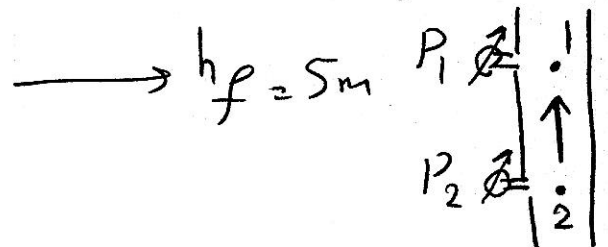 h_f = 5m
P_1
1
P_2
2